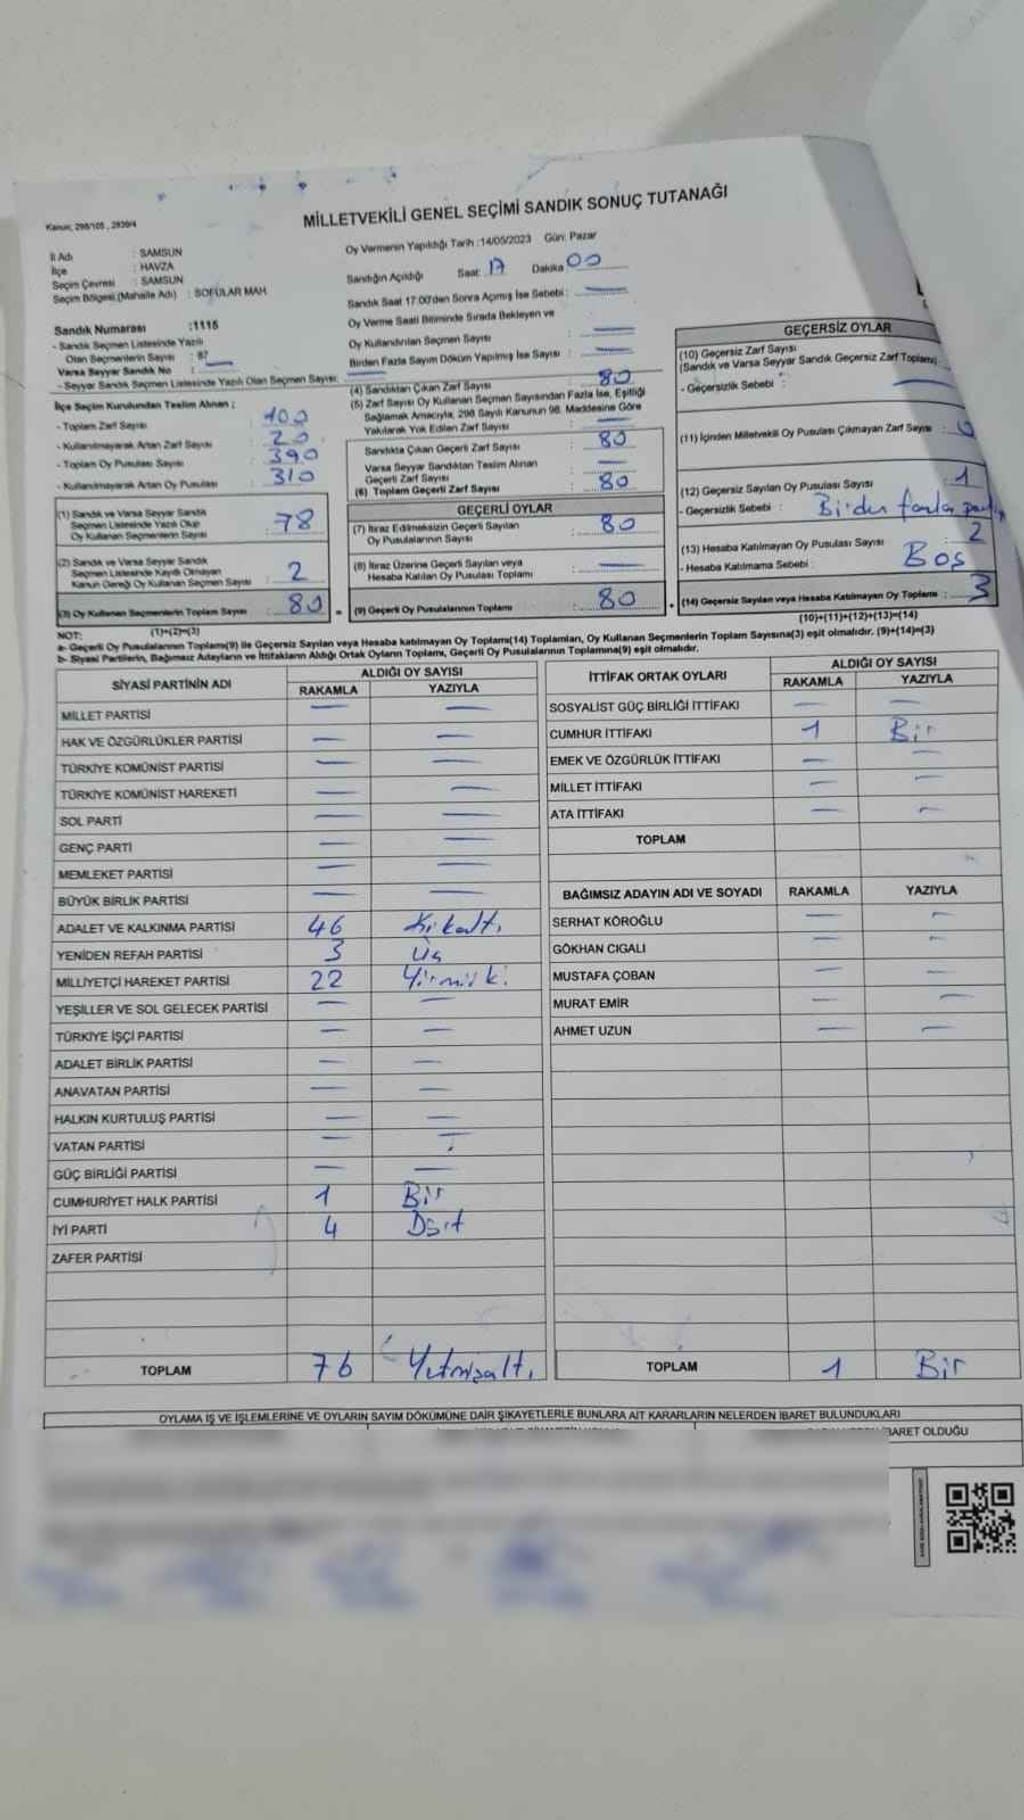 Kanun; 298/105 , 2839/4
MİLLETVEKİLİ GENEL SEÇİMİ SANDIK SONUÇ TUTANAĞI
İl Adı : SAMSUN
İlçe : HAVZA
Seçim Çevresi : SAMSUN
Seçim Bölgesi (Mahalle Adı) : SOFULAR MAH.
Oy Vermenin Yapıldığı Tarih :14/05/2023 Gün: Pazar
Sandığın Açıldığı Saat: 17 Dakika 00
Sandık Saat 17:00'den Sonra Açılmış İse Sebebi : —
Oy Verme Saati Bitiminde Sırada Bekleyen ve
Oy Kullandırılan Seçmen Sayısı : —
Birden Fazla Sayım Döküm Yapılmış İse Sayısı : —
Sandık Numarası :1115
- Sandık Seçmen Listesinde Yazılı
Olan Seçmenlerin Sayısı : 87
Varsa Seyyar Sandık No : —
- Seyyar Sandık Seçmen Listesinde Yazılı Olan Seçmen Sayısı: —
İlçe Seçim Kurulundan Teslim Alınan ;
- Toplam Zarf Sayısı : 100
- Kullanılmayarak Artan Zarf Sayısı : 20
- Toplam Oy Pusulası Sayısı : 390
- Kullanılmayarak Artan Oy Pusulası : 310
(1) Sandık ve Varsa Seyyar Sandık
Seçmen Listesinde Yazılı Olup
Oy Kullanan Seçmenlerin Sayısı : 78
(2) Sandık ve Varsa Seyyar Sandık
Seçmen Listesinde Kayıtlı Olmayan
Kanun Gereği Oy Kullanan Seçmen Sayısı : 2
(3) Oy Kullanan Seçmenlerin Toplam Sayısı : 80
(1)+(2)=(3)
(4) Sandıktan Çıkan Zarf Sayısı : 80
(5) Zarf Sayısı Oy Kullanan Seçmen Sayısından Fazla İse, Eşitliği
Sağlamak Amacıyla, 298 Sayılı Kanunun 98. Maddesine Göre
Yakılarak Yok Edilen Zarf Sayısı : —
Sandıkta Çıkan Geçerli Zarf Sayısı : 80
Varsa Seyyar Sandıktan Teslim Alınan
Geçerli Zarf Sayısı : —
(6) Toplam Geçerli Zarf Sayısı : 80
GEÇERLİ OYLAR
(7) İtiraz Edilmeksizin Geçerli Sayılan
Oy Pusulalarının Sayısı : 80
(8) İtiraz Üzerine Geçerli Sayılan veya
Hesaba Katılan Oy Pusulası Toplamı : —
(9) Geçerli Oy Pusulalarının Toplamı : 80
GEÇERSİZ OYLAR
(10) Geçersiz Zarf Sayısı
(Sandık ve Varsa Seyyar Sandık Geçersiz Zarf Toplamı)
- Geçersizlik Sebebi : —
(11) İçinden Milletvekili Oy Pusulası Çıkmayan Zarf Sayısı :
(12) Geçersiz Sayılan Oy Pusulası Sayısı : 1
- Geçersizlik Sebebi : Birden fazla
(13) Hesaba Katılmayan Oy Pusulası Sayısı : 2
- Hesaba Katılmama Sebebi : Boş
(14) Geçersiz Sayılan veya Hesaba Katılmayan Oy Toplamı : 3
(10)+(11)+(12)+(13)=(14)
NOT:
a- Geçerli Oy Pusulalarının Toplamı(9) ile Geçersiz Sayılan veya Hesaba katılmayan Oy Toplamı(14) Toplamları, Oy Kullanan Seçmenlerin Toplam Sayısına(3) eşit olmalıdır. (9)+(14)=(3)
b- Siyasi Partilerin, Bağımsız Adayların ve İttifakların Aldığı Ortak Oyların Toplamı, Geçerli Oy Pusulalarının Toplamına(9) eşit olmalıdır.
SİYASİ PARTİNİN ADI ALDIĞI OY SAYISI
RAKAMLA YAZIYLA
MİLLET PARTİSİ — —
HAK VE ÖZGÜRLÜKLER PARTİSİ — —
TÜRKİYE KOMÜNİST PARTİSİ — —
TÜRKİYE KOMÜNİST HAREKETİ — —
SOL PARTİ — —
GENÇ PARTİ — —
MEMLEKET PARTİSİ — —
BÜYÜK BİRLİK PARTİSİ — —
ADALET VE KALKINMA PARTİSİ 46
YENİDEN REFAH PARTİSİ 3 Üç
MİLLİYETÇİ HAREKET PARTİSİ 22 Yirmiiki
YEŞİLLER VE SOL GELECEK PARTİSİ — —
TÜRKİYE İŞÇİ PARTİSİ — —
ADALET BİRLİK PARTİSİ — —
ANAVATAN PARTİSİ — —
HALKIN KURTULUŞ PARTİSİ — —
VATAN PARTİSİ — —
GÜÇ BİRLİĞİ PARTİSİ — —
CUMHURİYET HALK PARTİSİ 1 Bir
İYİ PARTİ 4 Dört
ZAFER PARTİSİ
TOPLAM 76 Yetmişaltı
İTTİFAK ORTAK OYLARI ALDIĞI OY SAYISI
RAKAMLA YAZIYLA
SOSYALİST GÜÇ BİRLİĞİ İTTİFAKI — —
CUMHUR İTTİFAKI 1 Bir
EMEK VE ÖZGÜRLÜK İTTİFAKI — —
MİLLET İTTİFAKI — —
ATA İTTİFAKI — —
TOPLAM
BAĞIMSIZ ADAYIN ADI VE SOYADI RAKAMLA YAZIYLA
SERHAT KÖROĞLU — —
GÖKHAN CIGALI — —
MUSTAFA ÇOBAN — —
MURAT EMİR — —
AHMET UZUN — —
TOPLAM 1 Bir
OYLAMA İŞ VE İŞLEMLERİNE VE OYLARIN SAYIM DÖKÜMÜNE DAİR ŞİKAYETLERLE BUNLARA AİT KARARLARIN NELERDEN İBARET BULUNDUKLARI
İBARET OLDUĞU